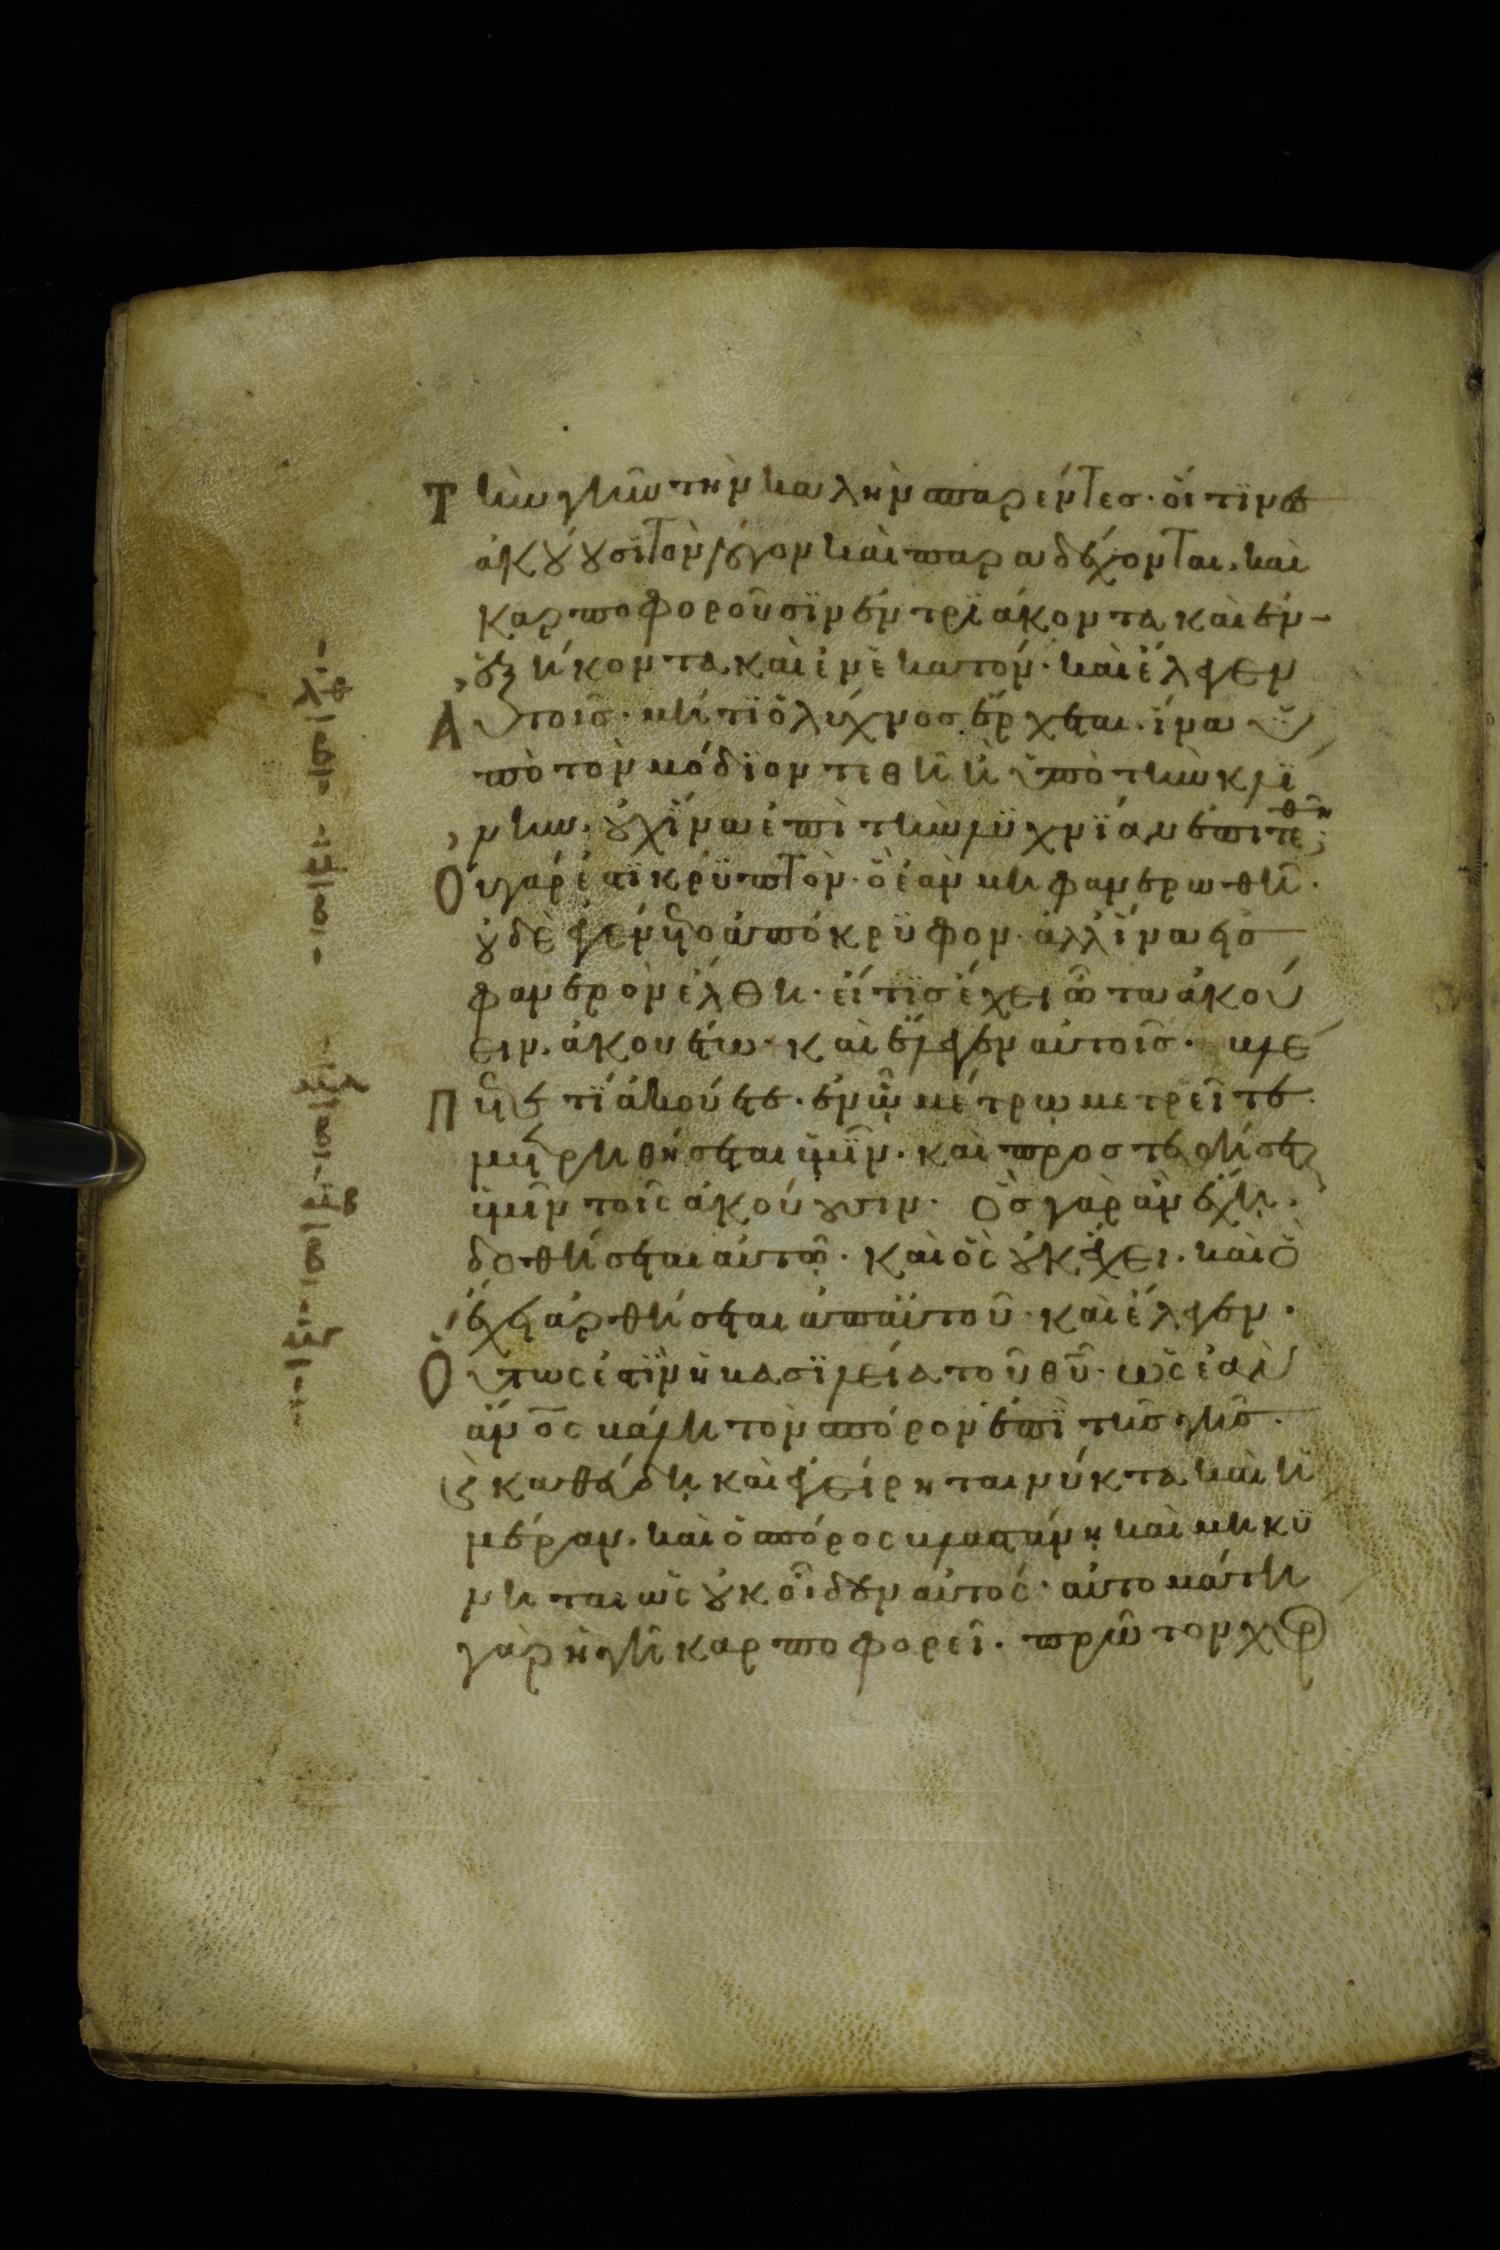 Τὴν γῆν τὴν καλὴν σπαρέντες· οἵτϊνες
ἀκούουσϊ τὸν λόγον καὶ παραδέχονται· καὶ
καρποφοροῦσϊν ἐν τρϊάκοντα καὶ ἐν
ἑξήκοντα καὶ ἐν ἑκατόν· καὶ ἔλεγεν
Αὐτοῖς· μήτϊ ὁ λύχνος ἔρχεται· ἵνα ὑ
πὸ τὸν μόδϊον τεθῆ ἢ ὑπὸ τὴν κλϊ
νην· οὐχ ἵνα ἐπὶ τὴν λυχνϊάν ἐπιτεθῆ;
Οὐ γάρ ἐστϊ κρϋπτὸν· ὃ ἐὰν μὴ φανερωθῆ·
οὐδὲ ἐγένετο ἀπόκρϋφον· ἀλλ' ἵνα εἰς
φανερὸν ἔλθη· εἴ τϊς ἔχει ὦτα ἀκού
ειν· ἀκουέτω· καὶ ἔλεγεν αὐτοῖς· βλέ
Πετε τϊ ἀκούετε· ἐν ᾧ μέτρῳ μετρεῖτε
μετρηθήσεται ὑμῖν· καὶ προστεθήσεται
ὑμῖν τοῖς ἀκούουσιν· Ὃς γὰρ ἂν ἔχῃ·
δοθήσεται αὐτῷ· καὶ ὃς οὐκ ἔχει· καὶ ὃ
ἔχει ἀρθήσεται ἀπ' αὐτοῦ· καὶ ἔλεγεν·
Οὕτως ἐστϊν ἡ βασϊλεία τοῦ θῦ· ὡς ἐὰν
ἄνος βάλη τὸν σπόρον ἐπϊ τῆς γῆς·
καὶ καθεύδῃ καὶ ἐγείρηται νύκτα καὶ ἡ
μέραν· καὶ ὁ σπόρος βλαστάνῃ καὶ μηκϋ
νηται ὡς οὐκ οἶδεν αὐτός· αὐτομάτη
γὰρ ἡ γῆ καρποφορεῖ· πρῶτον χόρ